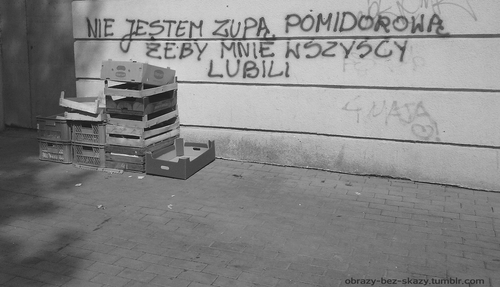 NIE JESTEM ZUPĄ POMIDOROWĄ
ŻEBY MNIE WSZYSCY
LUBILI
4 MAJA
obrazy-bez-skazy.tumblr.com